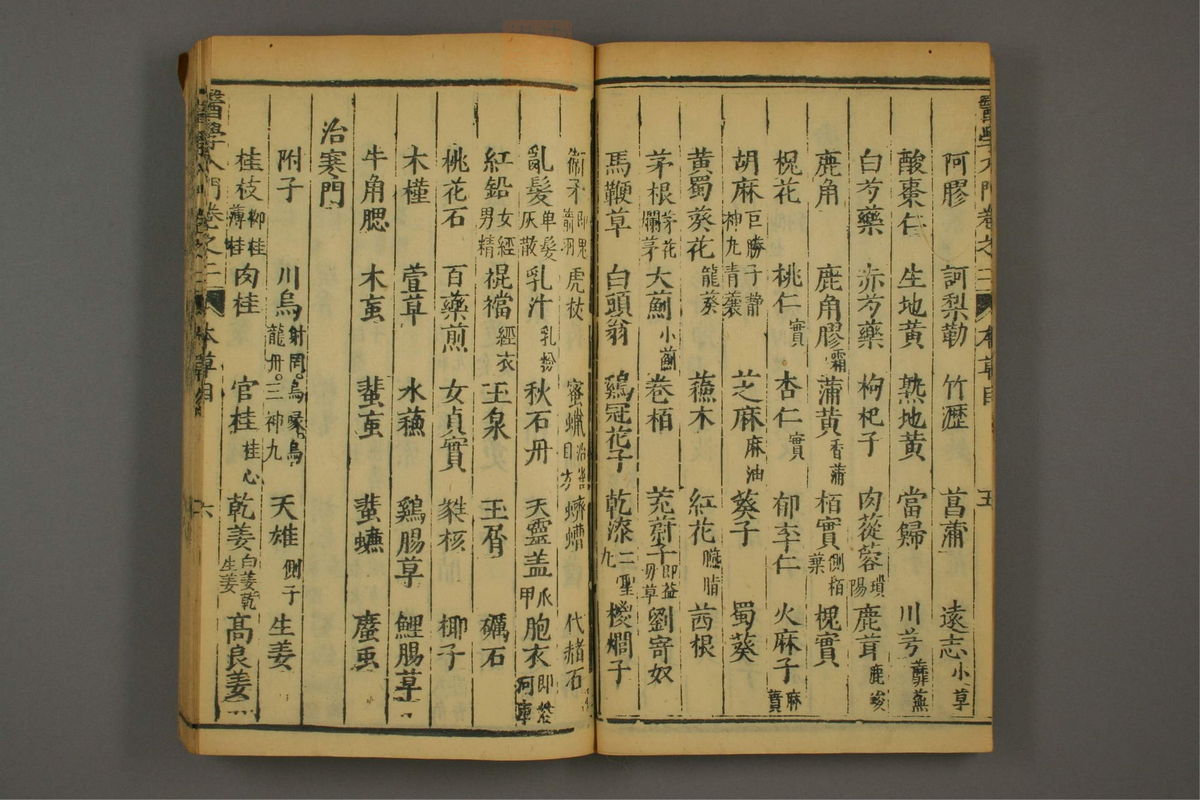 醫學入門卷之二 本草目 五
阿膠 訶梨勒 竹瀝 菖蒲 遠志小草
酸棗仁 生地黃 熟地黃 當歸 川芎蘼蕪
白芍藥 赤芍藥 枸杞子 肉蓯蓉瑣陽 鹿茸鹿峻
鹿角 鹿角膠霜 蒲黃香蒲 栢實側栢葉 槐實
槐花 桃仁實 杏仁實 郁李仁 火麻子麻蕡
胡麻巨勝子靜神丸青蘘 芝麻麻油 葵子 蜀葵
黃蜀葵花龍葵 蘓木 紅花臙脂 茜根
茅根茅花爛茅 大薊小薊 卷栢 茺蔚子即益母草 劉寄奴
馬鞭草 白頭翁 鷄冠花子 乾漆二聖丸 椶櫚子
衛矛即鬼箭羽 虎杖 蜜蠟 蠐螬 代赭石
亂髮单髮灰散 乳汁乳粉 秋石丹 天靈盖爪甲 胞衣即紫河車
紅鉛女經男精 裩襠經衣 玉泉 玉屑 礪石
桃花石 百藥煎 女貞實 椰子
木槿 萱草 水蘓 鷄腸草 鯉腸草
牛角腮 木䖟 蜚䖟 蜚蠊 䗪䖟
治寒門
附子 川烏射罔烏喙烏龍丹三神丸 天雄側子 生姜
桂枝柳桂薄桂 肉桂 官桂桂心 乾姜白姜乾生姜 高良姜
醫學入門卷之二 本草目 六